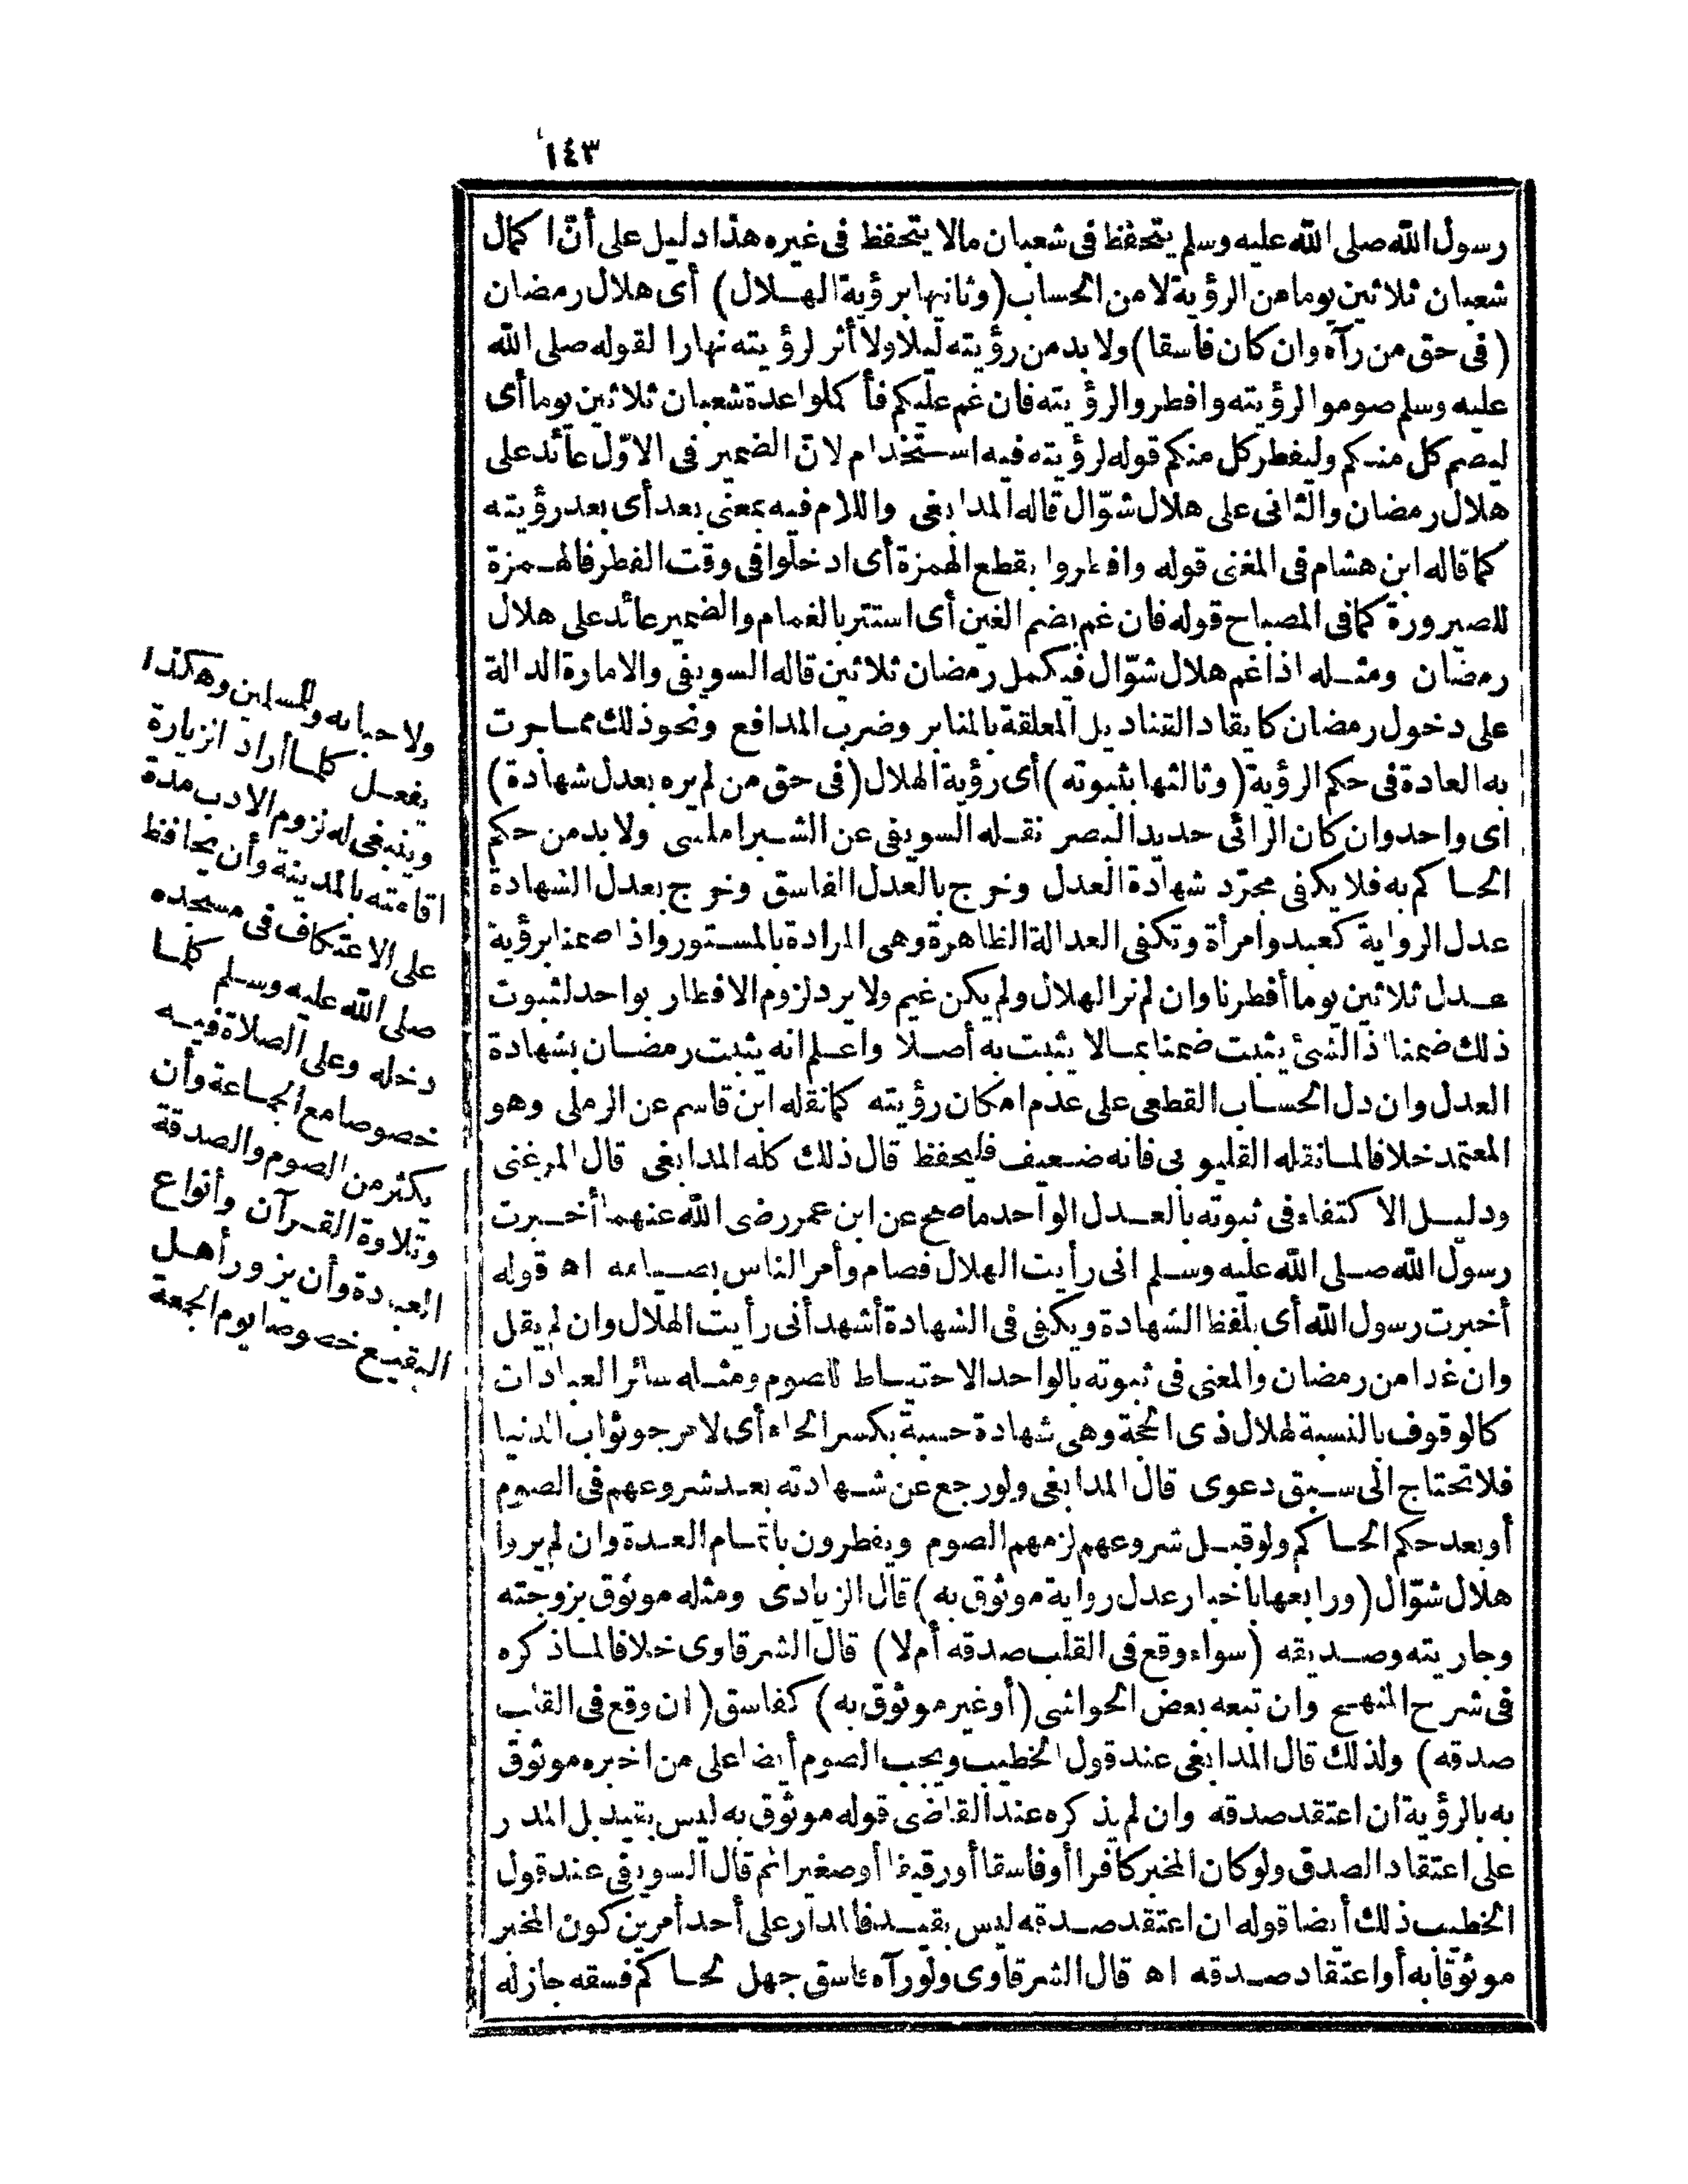 ١٤٣
رسول الله صلى الله عليه وسلم يتحفظ فى شعبان مالا يتحفظ فى غيره هذا دليل على أنّ اكمال
شعبان ثلاثين يوما من الرؤية لا من الحساب (وثانيها برؤية الهلال) أى هلال رمضان
(فى حق من رآه وان كان فاسقا) ولا بد من رؤيته ليلا ولا أثر لرؤيته نهارا لقوله صلى الله
عليه وسلم صوموا لرؤيته وافطروا لرؤيته فان غم عليكم فأكملوا عدة شعبان ثلاثين يوما أى
ليصم كل منكم وليفطر كل منكم قوله لرؤيته فيه استخدام لانّ الضمير فى الاوّل عائد على
هلال رمضان والثانى على هلال شوّال قاله المدابغى واللام فيه بمعنى بعد أى بعد رؤيته
كما قاله ابن هشام فى المغنى قوله وافطروا بقطع الهمزة أى ادخلوا فى وقت الفطر فالهمزة
للصيرورة كما فى المصباح قوله فان غم بضم الغين أى استتر بالغمام والضمير عائد على هلال
رمضان ومثله اذا غم هلال شوّال فيكمل رمضان ثلاثين قاله السويفى والامارة الدالة
على دخول رمضان كايقاد القناديل المعلقة بالمنابر وضرب المدافع ونحو ذلك مما جرت
به العادة فى حكم الرؤية (وثالثها بثبوته) أى رؤية الهلال (فى حق من لم يره بعدل شهادة)
اى واحد وان كان الرائى حديد البصر نقله السويفى عن الشبراملسى ولا بد من حكم
الحاكم به فلا يكفى مجرّد شهادة العدل وخرج بالعدل الفاسق وخرج بعدل الشهادة
عدل الرواية كعبد وامرأة وتكفى العدالة الظاهرة وهى المرادة بالمستور واذا صمنا برؤية
عدل ثلاثين يوما أفطرنا وان لم نر الهلال ولم يكن غيم ولا يرد لزوم الافطار بواحد لثبوت
ذلك ضمنا اذ الشئ يثبت ضمنا بما لا يثبت به أصلا واعلم انه يثبت رمضان بشهادة
العدل وان دل الحساب القطعى على عدم امكان رؤيته كما نقله ابن قاسم عن الرملى وهو
المعتمد خلافا لما نقله القليوبى فانه ضعيف فليحفظ قال ذلك كله المدابغى قال المرغنى
ودليل الاكتفاء فى ثبوته بالعدل الواحد ما صح عن ابن عمر رضى الله عنهما أخبرت
رسول الله صلى الله عليه وسلم انى رأيت الهلال فصام وأمر الناس بصيامه اه قوله
أخبرت رسول الله أى بلفظ الشهادة ويكفى فى الشهادة أشهد أنى رأيت الهلال وان لم يقل
وان غدا من رمضان والمعنى فى ثبوته بالواحد الاحتياط للصوم ومثله سائر العبادات
كالوقوف بالنسبة لهلال ذى الحجة وهى شهادة حسبة بكسر الحاء أى لا مرجو ثواب الدنيا
فلا تحتاج الى سبق دعوى قال المدابغى ولو رجع عن شهادته بعد شروعهم فى الصوم
أو بعد حكم الحاكم ولو قبل شروعهم لزمهم الصوم ويفطرون باتمام العدة وان لم يروا
هلال شوّال (ورابعها باخبار عدل رواية موثوق به) قال الزيادى ومثله موثوق بزوجته
وجاريته وصديقه (سواء وقع فى القلب صدقه أم لا) قال الشرقاوى خلافا لما ذكره
فى شرح المنهج وان تبعه بعض الحواشى (أو غير موثوق به) كفاسق (ان وقع فى القلب
صدقه) ولذلك قال المدابغى عند قول الخطيب ويجب الصوم أيضا على من اخبره موثوق
به بالرؤية ان اعتقد صدقه وان لم يذكره عند القاضى قوله موثوق به ليس بقيد بل المدار
على اعتقاد الصدق ولو كان المخبر كافرا أو فاسقا أو رقيقا أو صغيرا ثم قال السويفى عند قول
الخطيب ذلك أيضا قوله ان اعتقد صدقه ليس بقيد فالمدار على أحد أمرين كون المخبر
موثوقا به أو اعتقاد صدقه اه قال الشرقاوى ولو رآه فاسق جهل الحاكم فسقه جاز له
ولاحبابه وللمسلمين وهكذا
يفعل كلما أراد الزيارة
وينبغى له لزوم الادب مدة
اقامته بالمدينة وأن يحافظ
على الاعتكاف فى مسجده
صلى الله عليه وسلم كلما
دخله وعلى الصلاة فيه
خصوصا مع الجماعة وأن
يكثر من الصوم والصدقة
وتلاوة القرآن وأنواع
العبادة وأن يزور أهل
البقيع خصوصا يوم الجمعة